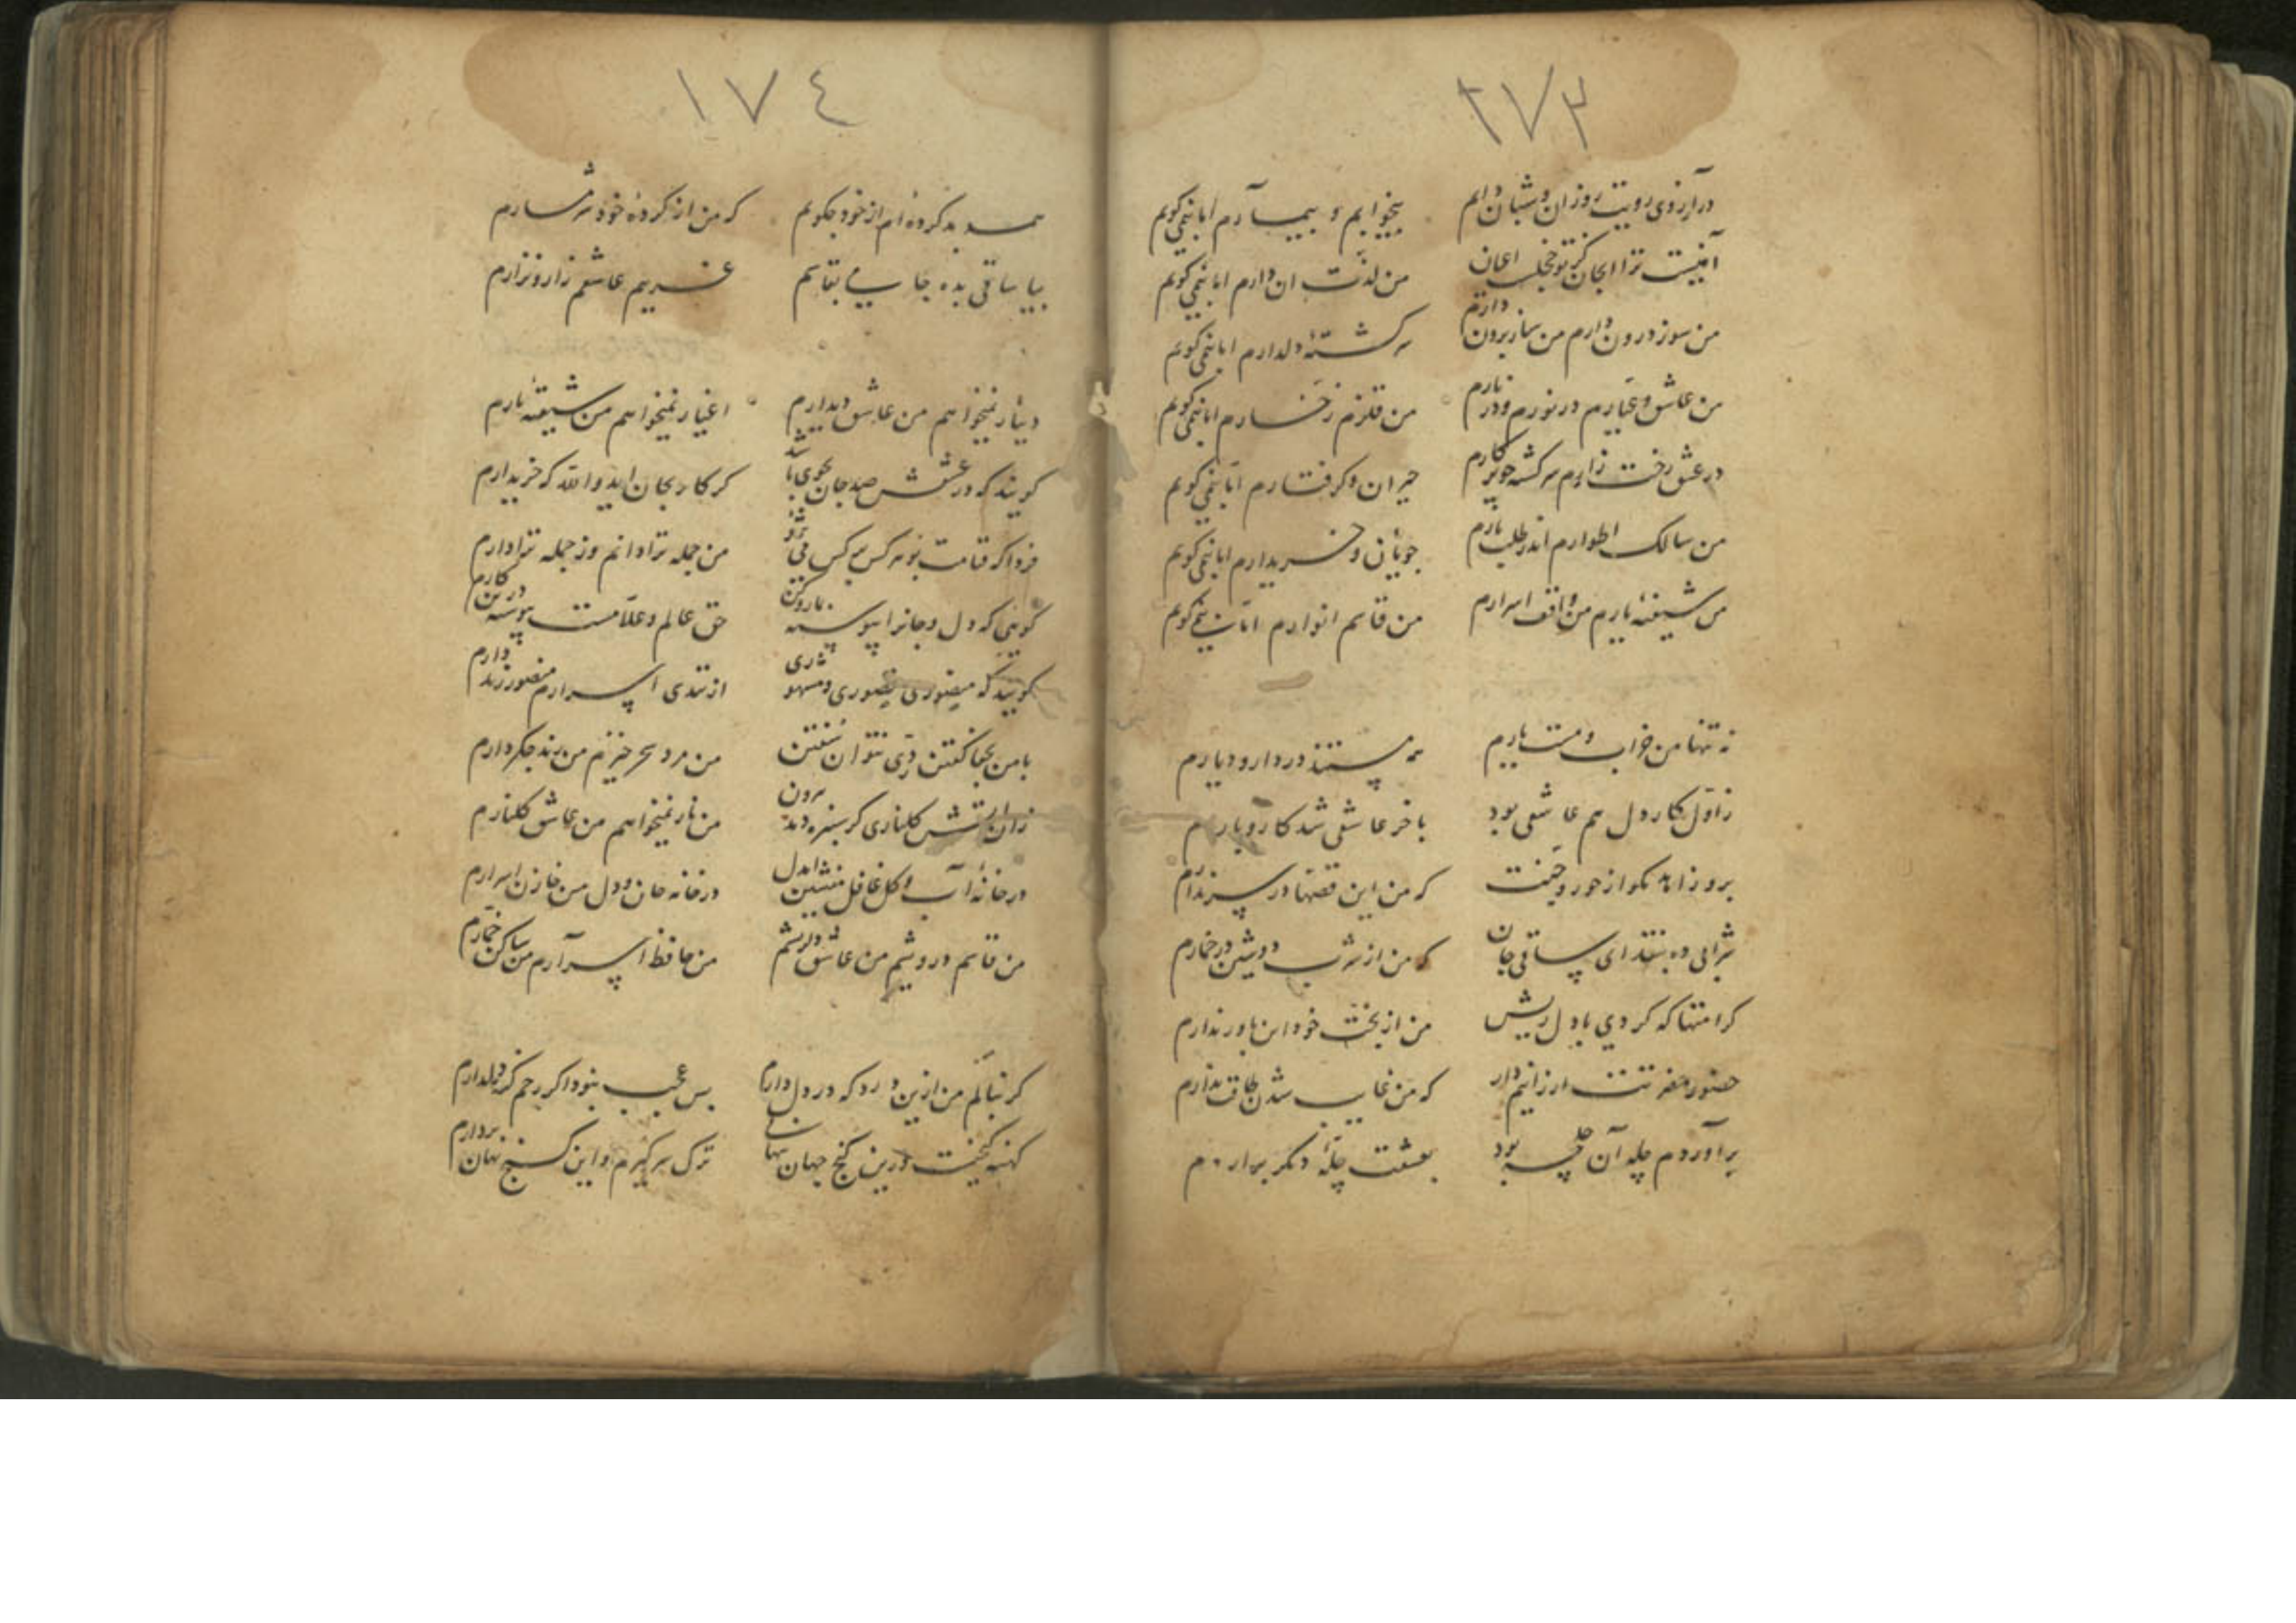 ٢٧٣
در آرزوی رویت روزان و شبان دایم بیخوابم و بیمارم اما نمی کویم
من لذت ان دارم اما نمی کویم
من سوز درون دارم من ساز برون دارم سرکشتهٔ دلدارم اما نمی کویم
من عاشق و عیارم در نورم و در نارم من قلزم زخارم اما نمی کویم
در عشق رخت زارم سرکشته چو پرکارم حیران و کرفتارم اما نمی کویم
من سالک اطوارم اندر طلب یارم جویان و خریدارم اما نمی کویم
من شیفتهٔ یارم من واقف اسرارم من قاسم انوارم اما نمی کویم
نه تنها من خراب و مست یارم همه مستند در دار و دیارم
ز اول کار دل هم عاشقی بود باخر عاشقی شد کار و بارم
برو زاهد مکو از حور و جنت که من این قصها در سر ندارم
شرابی ده بنقد ای ساقی جان که من از شرب دوشین در خمارم
کرامتها که کردی با دل ریش من از بخت خود این باور ندارم
حضور حضرتت ارزانیم دار که من غایب شدن طاقت ندارم
برآوردم چله آن جمله بود بعشقت چلهٔ دیکر برارم
١٧٤
همه بد کرده‌ام از خود چکویم که من از کردهٔ خود شرمسارم
بیا ساقی بده جامی بقاسم غریبم عاشقم زار و نزارم
دیار نمیخواهم من عاشق دیدارم اغیار نمیخواهم من شیفتهٔ یارم
کویند که در عشقش صد جان بجوی باشد کر کار بجان اید والله که خریدارم
فردا که قیامت شود هر کس بر کس من جمله ترا دانم وز جمله ترا دارم
کویی که دل و جانرا پیوسته حق عالم و علامست پیوسته درین کارم
کویند که منصوری از تندی اسرارم منصور زند دارم
با من بجفا کفتن دری نتوان سفتن من مرد سحر خیزم من رند جکردارم
زان اتش کلناری کر سبزه دمد برون من نار نمیخواهم من عاشق کلنارم
در خانهٔ آب و کل غافل منشین ایدل در خانه جان و دل من خازن اسرارم
من قاسم درویشم من عاشق دلریشم من حافظ اسرارم من ساکن خمارم
کر ننالم من ازین درد که در دل دارم بس عجب نبود اکر رحم کند دلدارم
کهنه کنجیست درین کنج جهان ترک سر کیرم و این کنج نهان بردارم